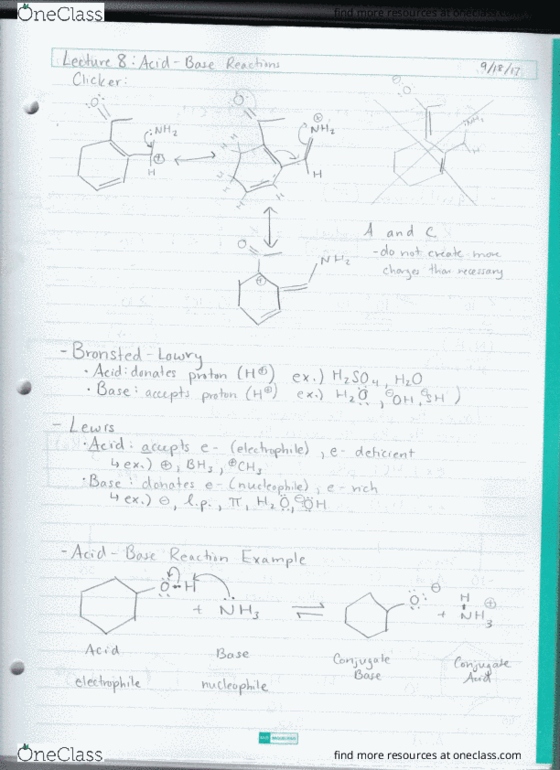 OneClass
find more resources at oneclass.com
Lecture 8: Acid-Base Reactions
9/18/17
Clicker:
:O:
:NH2
⊕
H
:O:
⊕
NH2
H
H
H
H
H
H
⊖
:O:
H
O
NH2
⊕
A and C
- do not create more
charges than necessary
- Bronsted-Lowry
· Acid: donates proton (H⊕) ex.) H2SO4, H2O
· Base: accepts proton (H⊕) ex.) H2Ö, ⊖OH, ⊖SH )
- Lewis
· Acid: accepts e- (electrophile), e- deficient
↳ ex.) ⊕, BH3, ⊕CH3
· Base: donates e- (nucleophile), e- rich
↳ ex.) ⊖, l.p., π, H2Ö, ⊖ÖH
- Acid-Base Reaction Example
O-H + NH3 ⇌ O:⊖ + H NH3 ⊕
Acid Base Conjugate Base Conjugate Acid
electrophile nucleophile
OneClass
find more resources at oneclass.com